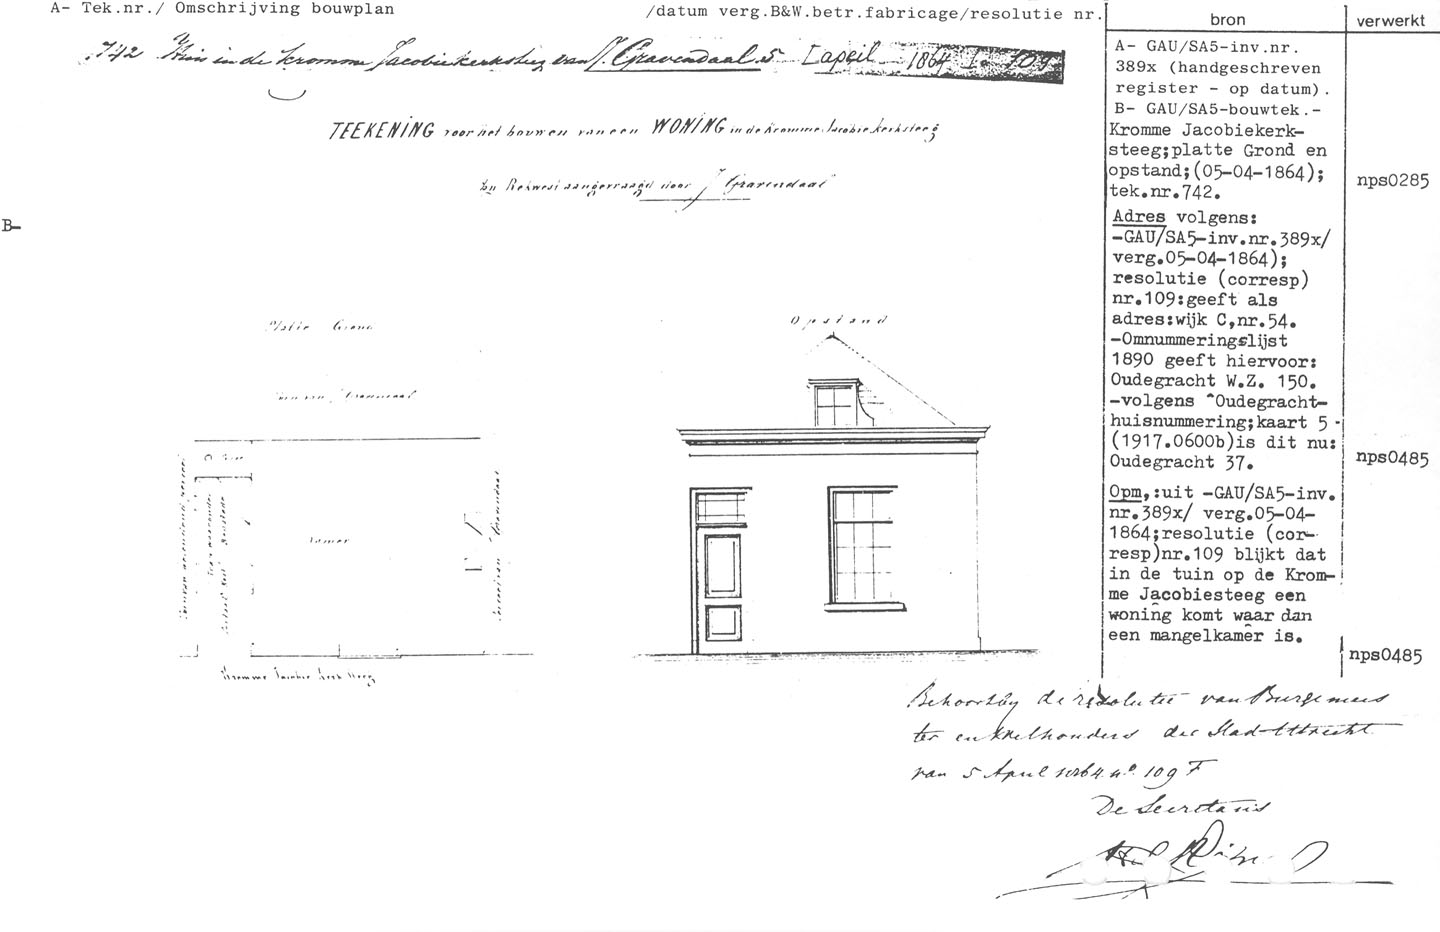 A- Tek.nr./ Omschrijving bouwplan /datum verg.B&W.betr.fabricage/resolutie nr.
bron
verwerkt
742 Huis in de kromme Jacobiekerksteeg van J. Gravendaal 5 april 1864 109
TEEKENING voor het bouwen van een WONING in de Kromme Jacobie kerksteeg
bij Rekwest aangevraagd door J Gravendaal
B-
Platte Grond
Opstand
Tuin van J Gravendaal
Kamer
Kromme Jacobie Kerk Steeg
A- GAU/SA5-inv.nr.
389x (handgeschreven
register - op datum).
B- GAU/SA5-bouwtek.-
Kromme Jacobiekerk-
steeg;platte Grond en
opstand;(05-04-1864);
tek.nr.742.
Adres volgens:
-GAU/SA5-inv.nr.389x/
verg.05-04-1864);
resolutie (corresp)
nr.109:geeft als
adres:wijk C,nr.54.
-Omnummeringslijst
1890 geeft hiervoor:
Oudegracht W.Z. 150.
-volgens "Oudegracht-
huisnummering;kaart 5 -
(1917.0600b)is dit nu:
Oudegracht 37.
Opm,:uit -GAU/SA5-inv.
nr.389x/ verg.05-04-
1864;resolutie (cor-
resp)nr.109 blijkt dat
in de tuin op de Krom-
me Jacobiesteeg een
woning komt waar dan
een mangelkamer is.
nps0285
nps0485
nps0485
Behoort bij de resolutie van Burgemees
ter en Wethouders der Stad Utrecht
van 5 April 1864 no 109 F
De Secretaris